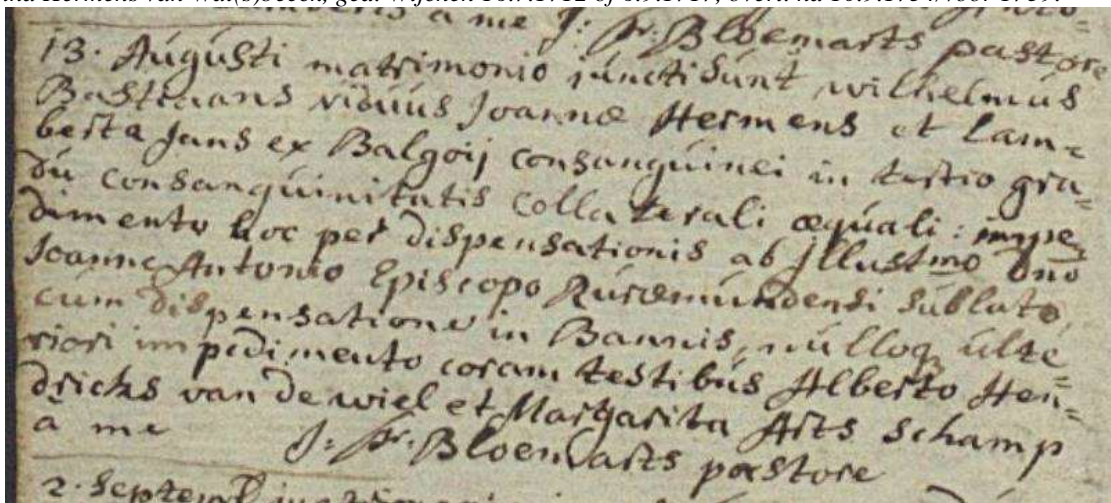 a me J: Fr: Bloemarts pastore
13. Augusti matrimonio iuncti sunt wilhelmus
Bastiaans viduus Joannæ Hermens et Lam=
berta Jans ex Balgoij consanguinei in tertio gra=
du consanguinitatis collaterali æquali: impe=
dimento hoc per dispensationis ab Jllustmo Dno
Joanne Antonio Episcopo Ruræmundensi sublato,
cum dispensatione in Bannis, nulloq ulte=
riori impedimento coram testibus Alberto Hen=
dricks van de wiel et Margarita Arts Schamp
à me J: Fr: Bloemarts pastore
2. Septemb